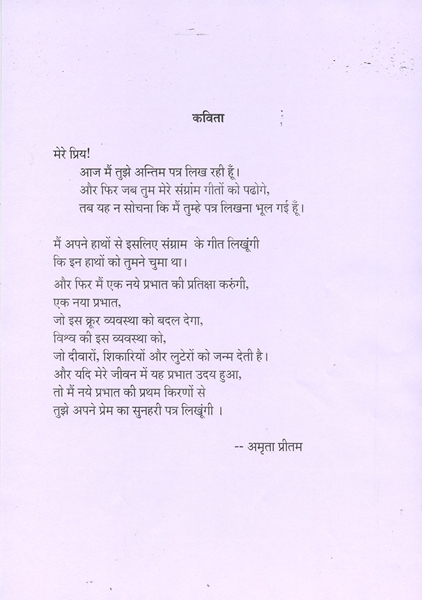 कविता
मेरे प्रिय!
आज मैं तुझे अन्तिम पत्र लिख रही हूँ।
और फिर जब तुम मेरे संग्राम गीतों को पढोगे,
तब यह न सोचना कि मैं तुम्हे पत्र लिखना भूल गई हूँ।
मैं अपने हाथों से इसलिए संग्राम के गीत लिखूंगी
कि इन हाथों को तुमने चुमा था।
और फिर मैं एक नये प्रभात की प्रतिक्षा करुंगी,
एक नया प्रभात,
जो इस क्रूर व्यवस्था को बदल देगा,
विश्व की इस व्यवस्था को,
जो दीवारों, शिकारियों और लुटेरों को जन्म देती है।
और यदि मेरे जीवन में यह प्रभात उदय हुआ,
तो मैं नये प्रभात की प्रथम किरणों से
तुझे अपने प्रेम का सुनहरी पत्र लिखूंगी ।
-- अमृता प्रीतम